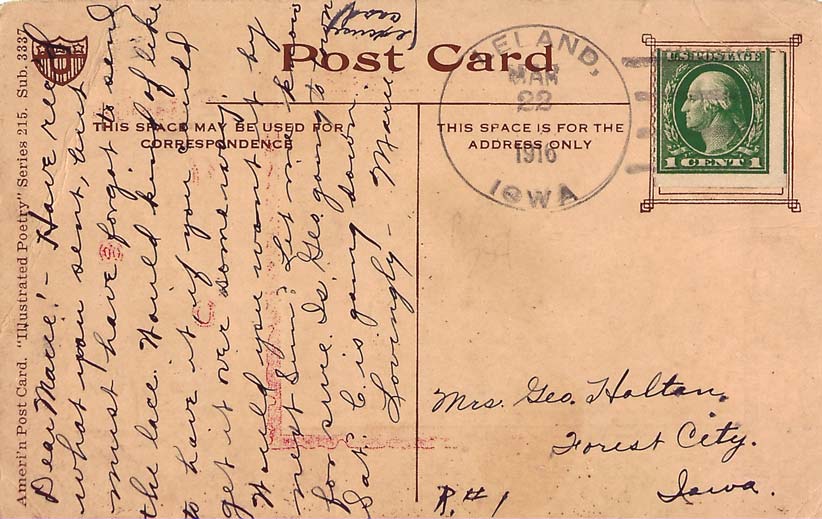 Ameri'n Post Card. "Illustrated Poetry" Series 215. Sub. 3337.
Post Card
THIS SPACE MAY BE USED FOR
CORRESPONDENCE
THIS SPACE IS FOR THE
ADDRESS ONLY
LELAND,
MAR
22
1916
IOWA
U.S. POSTAGE
1 CENT 1
Dear Marie! - Have rec'd
what you sent, but
must have forgot to send
the lace. Would kind of like
to have it if you could
get it over someway.
Would you want it by
next Sun? Let me know
for sure. Is Geo going to
Sat. C is going down.
Lovingly - Marie
Mrs. Geo. Holtan.
Forest City.
Iowa.
R.#1